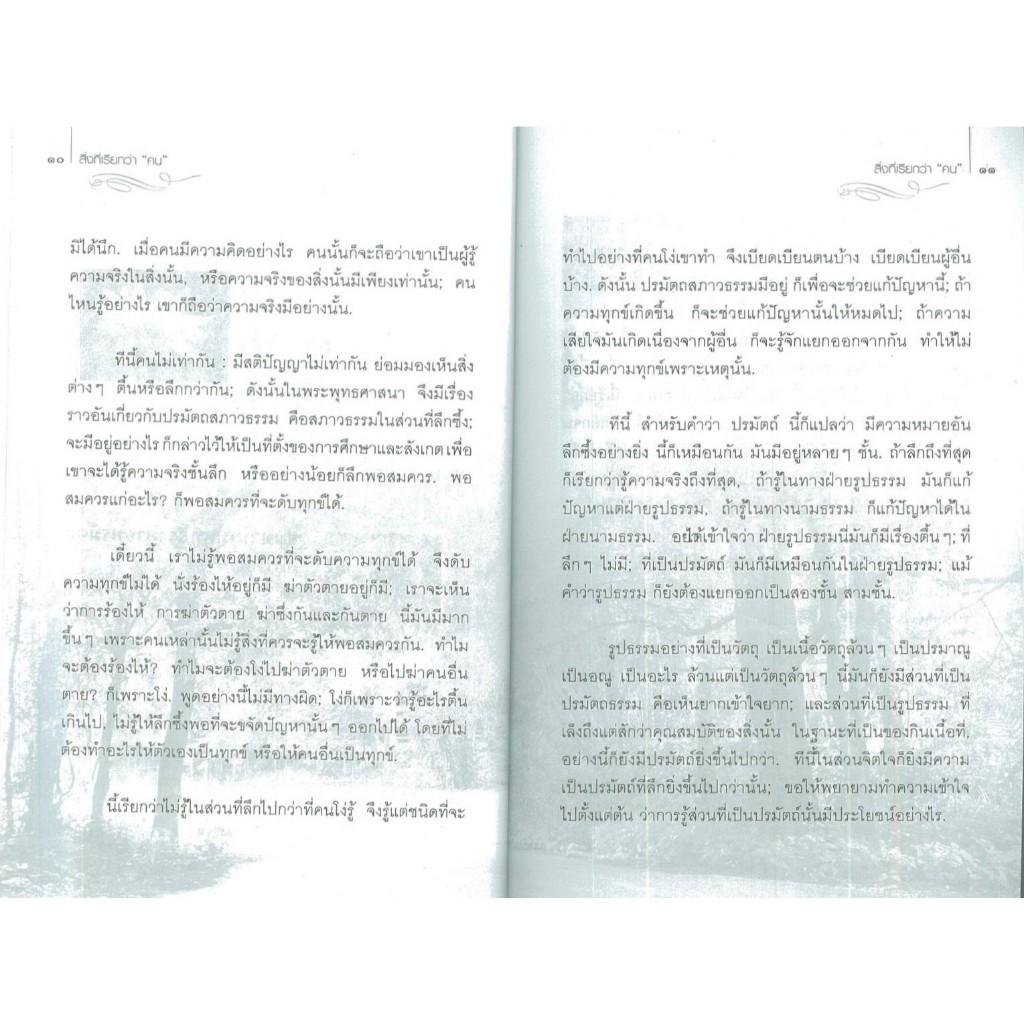 ๑๐ สิ่งที่เรียกว่า "คน"
มิได้นึก. เมื่อคนมีความคิดอย่างไร คนนั้นก็จะถือว่าเขาเป็นผู้รู้
ความจริงในสิ่งนั้น, หรือความจริงของสิ่งนั้นมีเพียงเท่านั้น; คน
ไหนรู้อย่างไร เขาก็ถือว่าความจริงมีอย่างนั้น.
ทีนี้คนไม่เท่ากัน : มีสติปัญญาไม่เท่ากัน ย่อมมองเห็นสิ่ง
ต่างๆ ตื้นหรือลึกกว่ากัน; ดังนั้นในพระพุทธศาสนา จึงมีเรื่อง
ราวอันเกี่ยวกับปรมัตถสภาวธรรม คือสภาวธรรมในส่วนที่ลึกซึ้ง;
จะมีอยู่อย่างไร ก็กล่าวไว้ให้เป็นที่ตั้งของการศึกษาและสังเกต เพื่อ
เขาจะได้รู้ความจริงชั้นลึก หรืออย่างน้อยก็ลึกพอสมควร. พอ
สมควรแก่อะไร? ก็พอสมควรที่จะดับทุกข์ได้.
เดี๋ยวนี้ เราไม่รู้พอสมควรที่จะดับความทุกข์ได้ จึงดับ
ความทุกข์ไม่ได้ นั่งร้องไห้อยู่ก็มี ฆ่าตัวตายอยู่ก็มี; เราจะเห็น
ว่าการร้องไห้ การฆ่าตัวตาย ฆ่าซึ่งกันและกันตาย นี้มันมีมาก
ขึ้นๆ เพราะคนเหล่านั้นไม่รู้สิ่งที่ควรจะรู้ให้พอสมควรกัน. ทำไม
จะต้องร้องไห้? ทำไมจะต้องโง่ไปฆ่าตัวตาย หรือไปฆ่าคนอื่น
ตาย? ก็เพราะโง่. พูดอย่างนี้ไม่มีทางผิด; โง่ก็เพราะว่ารู้อะไรตื้น
เกินไป, ไม่รู้ให้ลึกซึ้งพอที่จะขจัดปัญหานั้นๆ ออกไปได้ โดยที่ไม่
ต้องทำอะไรให้ตัวเองเป็นทุกข์ หรือให้คนอื่นเป็นทุกข์.
นี้เรียกว่าไม่รู้ในส่วนที่ลึกไปกว่าที่คนโง่รู้ จึงรู้แต่ชนิดที่จะ
สิ่งที่เรียกว่า "คน" ๑๑
ทำไปอย่างที่คนโง่เขาทำ จึงเบียดเบียนตนบ้าง เบียดเบียนผู้อื่น
บ้าง. ดังนั้น ปรมัตถสภาวธรรมมีอยู่ ก็เพื่อจะช่วยแก้ปัญหานี้; ถ้า
ความทุกข์เกิดขึ้น ก็จะช่วยแก้ปัญหานั้นให้หมดไป; ถ้าความ
เสียใจมันเกิดเนื่องจากผู้อื่น ก็จะรู้จักแยกออกจากกัน ทำให้ไม่
ต้องมีความทุกข์เพราะเหตุนั้น.
ทีนี้ สำหรับคำว่า ปรมัตถ์ นี้ก็แปลว่า มีความหมายอัน
ลึกซึ้งอย่างยิ่ง นี้ก็เหมือนกัน มันมีอยู่หลายๆ ชั้น. ถ้าลึกถึงที่สุด
ก็เรียกว่ารู้ความจริงถึงที่สุด, ถ้ารู้ในทางฝ่ายรูปธรรม มันก็แก้
ปัญหาแต่ฝ่ายรูปธรรม, ถ้ารู้ในทางนามธรรม ก็แก้ปัญหาได้ใน
ฝ่ายนามธรรม. อย่าได้เข้าใจว่า ฝ่ายรูปธรรมนี่มันก็มีเรื่องตื้นๆ; ที่
ลึกๆ ไม่มี; ที่เป็นปรมัตถ์ มันก็มีเหมือนกันในฝ่ายรูปธรรม; แม้
คำว่ารูปธรรม ก็ยังต้องแยกออกเป็นสองชั้น สามชั้น.
รูปธรรมอย่างที่เป็นวัตถุ เป็นเนื้อวัตถุล้วนๆ เป็นปรมาณู
เป็นอณู เป็นอะไร ล้วนแต่เป็นวัตถุล้วนๆ นี้มันก็ยังมีส่วนที่เป็น
ปรมัตถธรรม คือเห็นยากเข้าใจยาก; และส่วนที่เป็นรูปธรรม ที่
เล็งถึงแต่สักว่าคุณสมบัติของสิ่งนั้น ในฐานะที่เป็นของกินเนื้อที่,
อย่างนี้ก็ยังมีปรมัตถ์ยิ่งขึ้นไปกว่า. ทีนี้ในส่วนจิตใจก็ยิ่งมีความ
เป็นปรมัตถ์ที่ลึกยิ่งขึ้นไปกว่านั้น; ขอให้พยายามทำความเข้าใจ
ไปตั้งแต่ต้น ว่าการรู้ส่วนที่เป็นปรมัตถ์นั้นมีประโยชน์อย่างไร.